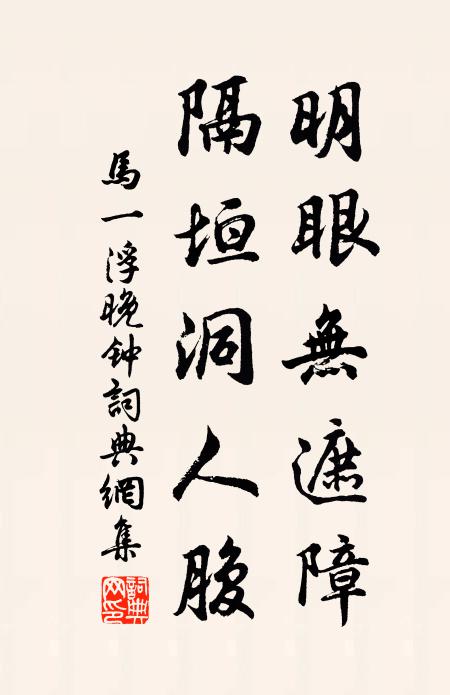 明眼無遮障
隔垣洞人腹
馬一浮晚钟詞典網集
詞典网印